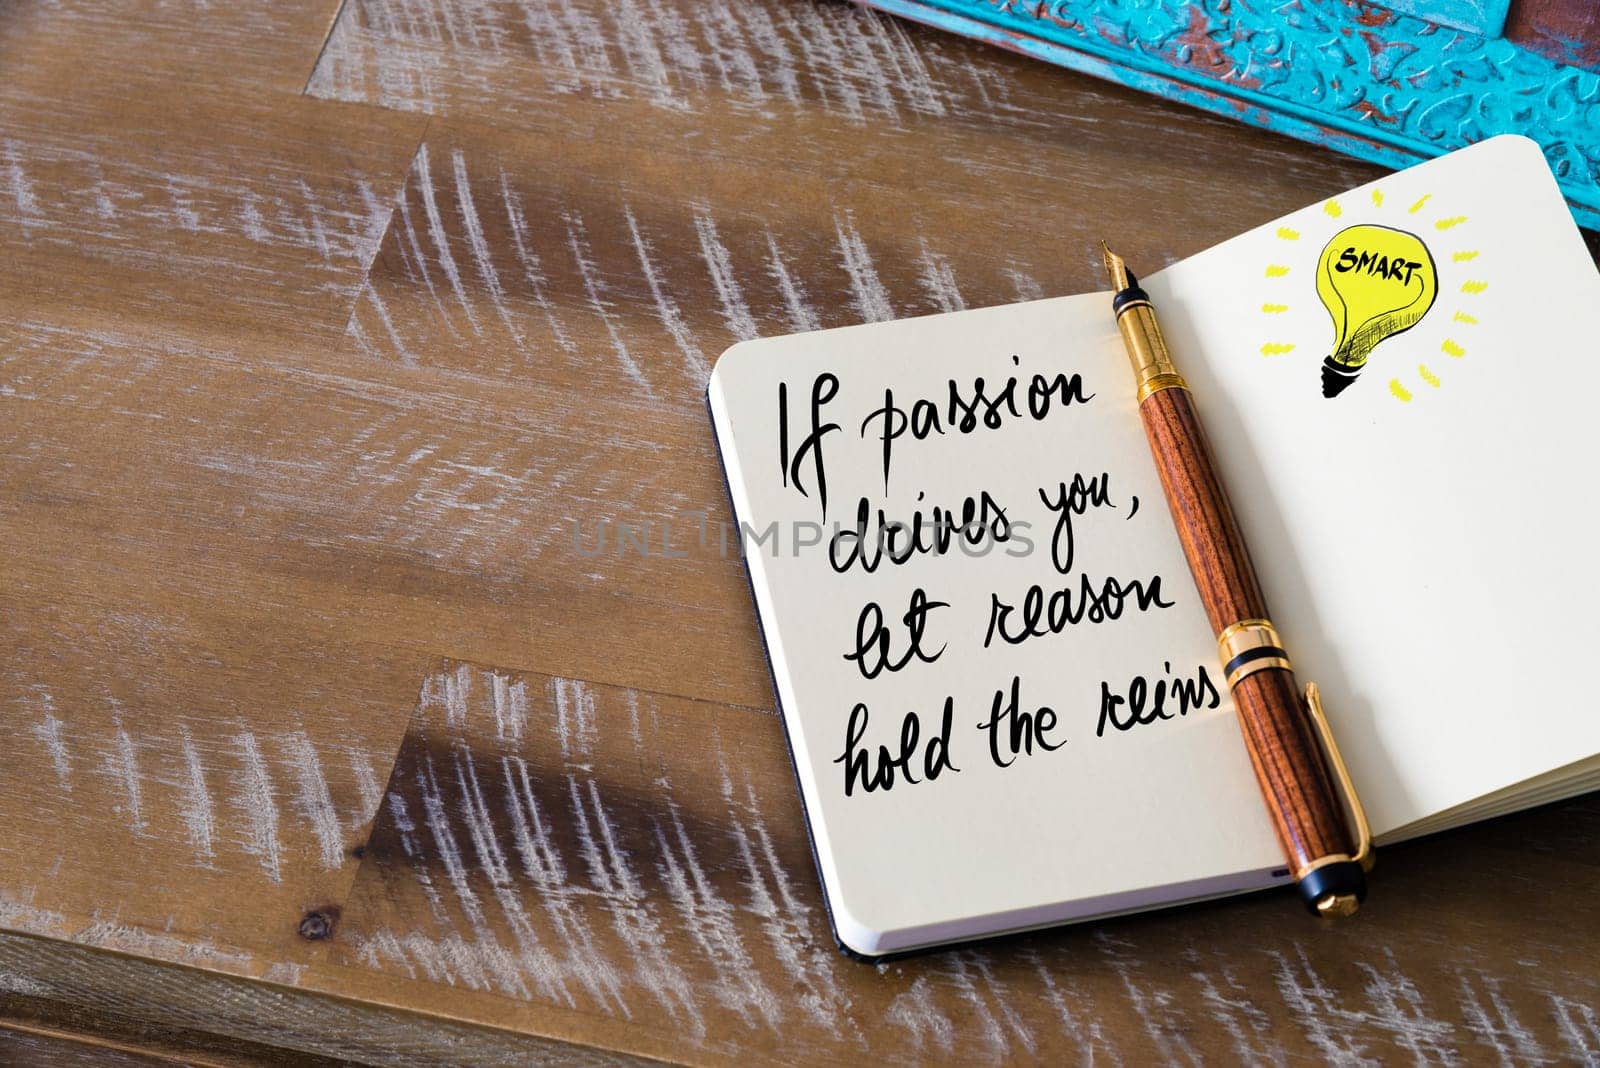 If passion
drives you,
let reason
hold the reins
SMART
UNLIMPHOTOS